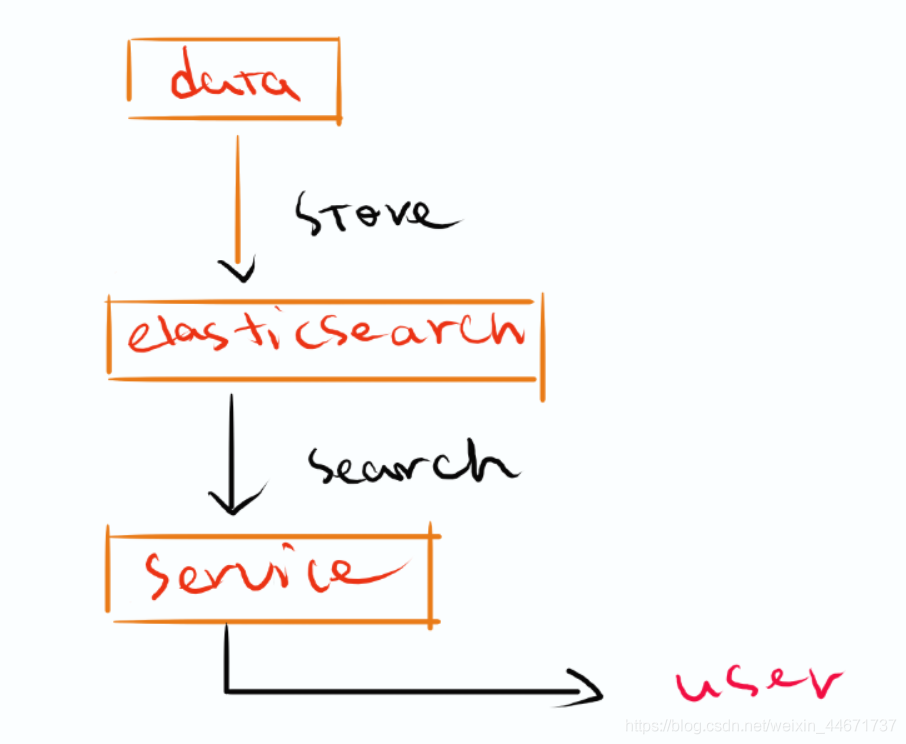 data
store
elasticsearch
search
service
user
https://blog.csdn.net/weixin_44671737